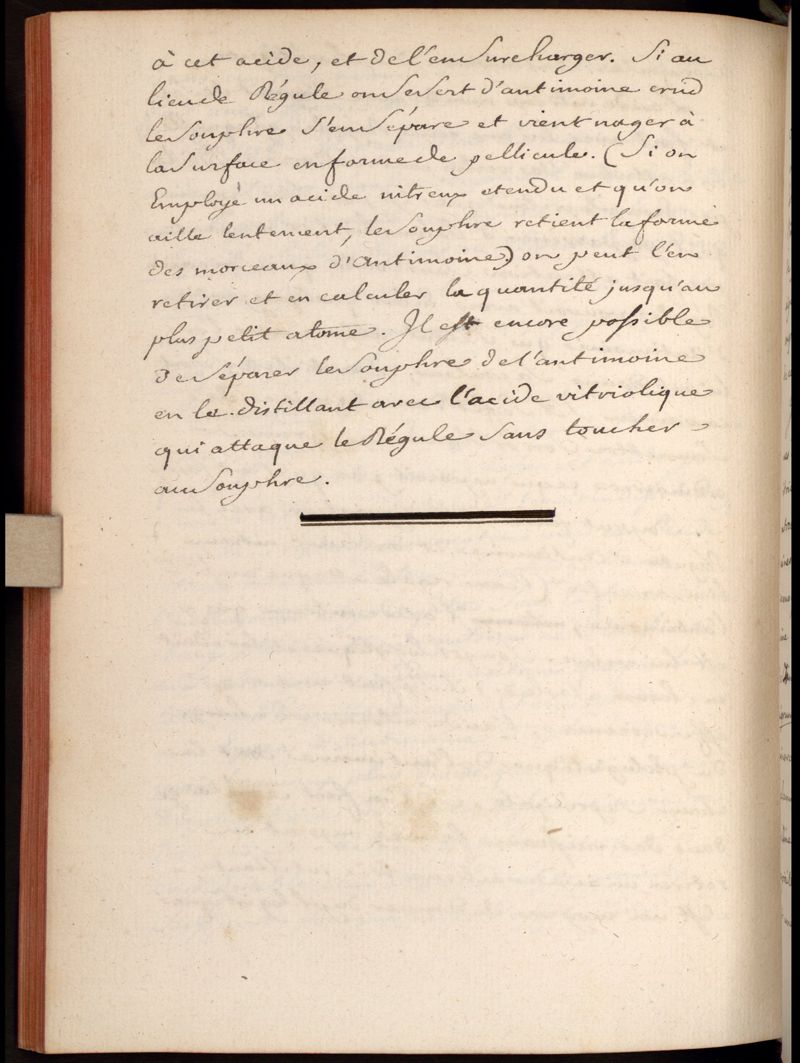 à cet acide, et de l'en Surcharger. Si au
lieu de Régule on se sert d'antimoine crud
le Souphre s'en Sépare et vient nager à
la Surface en forme de pellicule. (Si on
Employe un acide nitreux etendu et qu'on
aille lentement, le Souphre retient la forme
des morceaux d'Antimoine) on peut l'en
retirer et en calculer la quantité jusqu'au
plus petit atome. Il est encore possible
de Séparer le Souphre de l'antimoine
en le distillant avec l'acide vitriolique
qui attaque le Régule Sans toucher
au Souphre.